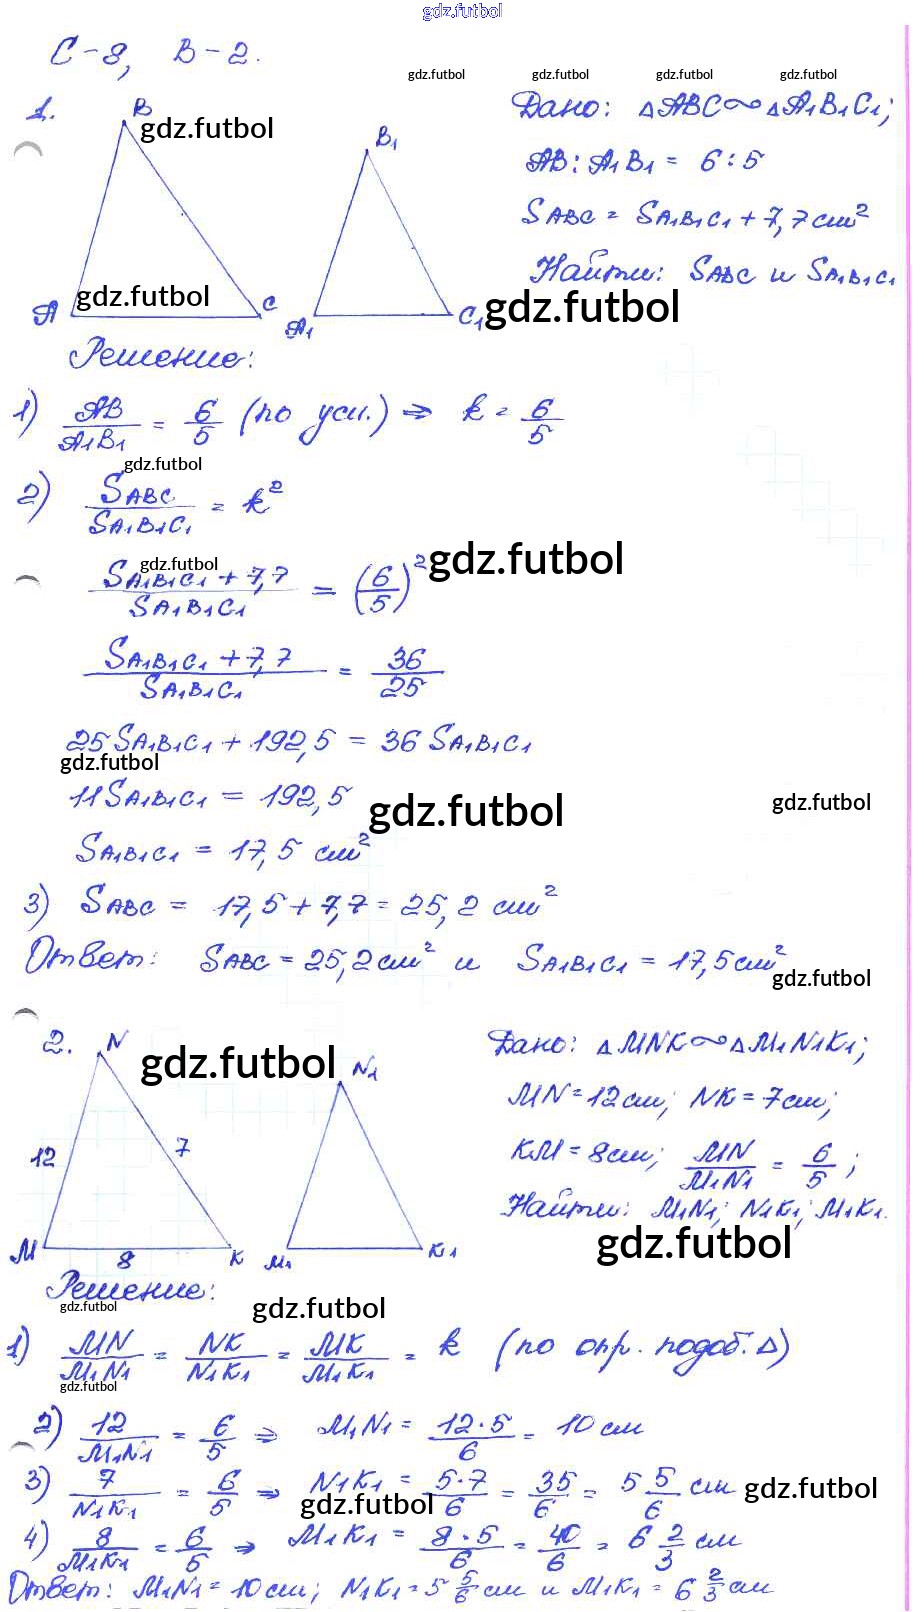 gdz.futbol
С-8, В-2.
gdz.futbol gdz.futbol gdz.futbol gdz.futbol
1.
B
gdz.futbol
B₁
Дано: △ABC∾△A₁B₁C₁;
AB:A₁B₁ = 6:5
SABC = SA₁B₁C₁ + 7,7 см²
Найти: SABC и SA₁B₁C₁
A gdz.futbol C A₁ C₁ gdz.futbol
Решение:
1) AB/A₁B₁ = 6/5 (по усл.) ⇒ k = 6/5
gdz.futbol
2) SABC/SA₁B₁C₁ = k²
gdz.futbol gdz.futbol
(SA₁B₁C₁ + 7,7)/SA₁B₁C₁ = (6/5)²
(SA₁B₁C₁ + 7,7)/SA₁B₁C₁ = 36/25
25 SA₁B₁C₁ + 192,5 = 36 SA₁B₁C₁
gdz.futbol
11 SA₁B₁C₁ = 192,5
gdz.futbol gdz.futbol
SA₁B₁C₁ = 17,5 см²
3) SABC = 17,5 + 7,7 = 25,2 см²
Ответ: SABC = 25,2 см² и SA₁B₁C₁ = 17,5 см²
gdz.futbol
2. N
gdz.futbol
N₁
12 7
M 8 K M₁ K₁
Дано: △MNK∾△M₁N₁K₁;
MN = 12 см; NK = 7 см;
KM = 8 см; MN/M₁N₁ = 6/5;
Найти: M₁N₁; N₁K₁; M₁K₁.
gdz.futbol
Решение:
gdz.futbol gdz.futbol
1) MN/M₁N₁ = NK/N₁K₁ = MK/M₁K₁ = k (по опр. подоб. △)
gdz.futbol
2) 12/M₁N₁ = 6/5 ⇒ M₁N₁ = 12·5/6 = 10 см
3) 7/N₁K₁ = 6/5 ⇒ N₁K₁ = 5·7/6 = 35/6 = 5 5/6 см
gdz.futbol gdz.futbol
4) 8/M₁K₁ = 6/5 ⇒ M₁K₁ = 8·5/6 = 40/6 = 6 2/3 см
Ответ: M₁N₁ = 10 см; N₁K₁ = 5 5/6 см и M₁K₁ = 6 2/3 см